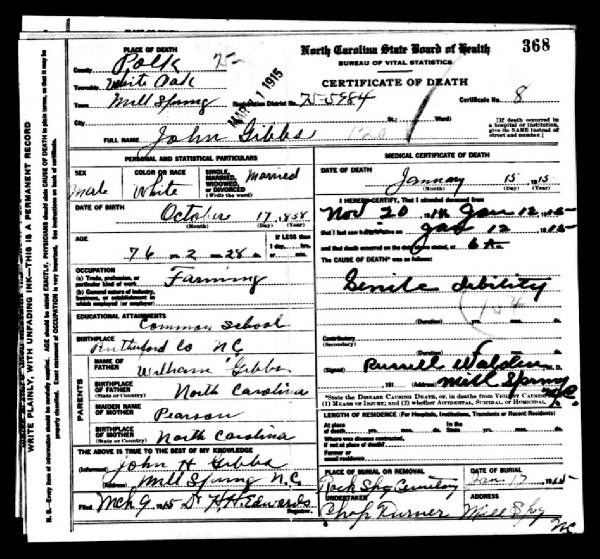 North Carolina State Board of Health 368
BUREAU OF VITAL STATISTICS
CERTIFICATE OF DEATH
PLACE OF DEATH
County Polk 75-
Township White Oak
Town Mill Spring
MAR 1 1915
Registration District No. 75-5984 Certificate No. 8
City St.; Ward)
[If death occurred in a hospital or institution, give its NAME instead of street and number.]
FULL NAME John Gibbs
PERSONAL AND STATISTICAL PARTICULARS
SEX Male
COLOR OR RACE White
SINGLE, MARRIED, WIDOWED, OR DIVORCED (Write the word) Married
DATE OF BIRTH October 17, 1838
(Month) (Day) (Year)
AGE 76-2-28
If LESS than 1 day, hrs. or min.
OCCUPATION
(a) Trade, profession, or particular kind of work Farming
(b) General nature of industry, business, or establishment in which employed (or employer)
EDUCATIONAL ATTAINMENTS
Common School
BIRTHPLACE
(State or Country) Rutherford Co NC
PARENTS
NAME OF FATHER William Gibbs
BIRTHPLACE OF FATHER (State or Country) North Carolina
MAIDEN NAME OF MOTHER Pearson
BIRTHPLACE OF MOTHER (State or Country) North Carolina
THE ABOVE IS TRUE TO THE BEST OF MY KNOWLEDGE
(Informant) John H Gibbs
(Address) Mill Spring N.C.
Filed Mch 9 1915 Dr H H Edwards
Registrar
MEDICAL CERTIFICATE OF DEATH
DATE OF DEATH
January 15 1915
(Month) (Day) (Year)
I HEREBY CERTIFY, That I attended deceased from
Nov 20 1914, Jan 12 1915
that I last saw alive on Jan 12 1915
and that death occurred on the date stated, at 6 A m.
The CAUSE OF DEATH* was as follows:
Senile debility
154
(Duration) yrs. mos. ds.
Contributory
(Secondary)
(Duration) yrs. mos. ds.
(Signed) Russell Walden M. D.
, 191 (Address) Mill Spring N.C.
*State the DISEASE CAUSING DEATH, or, in deaths from VIOLENT CAUSES, (1) MEANS OF INJURY; and (2) whether ACCIDENTAL, SUICIDAL, or HOMICIDAL
LENGTH OF RESIDENCE (For Hospitals, Institutions, Transients or Recent Residents)
At place of death yrs. mos. ds. State yrs. mos. ds.
Where was disease contracted, if not at place of death?
Former or usual residence
PLACE OF BURIAL OR REMOVAL
Rock Spg Cemetery
DATE OF BURIAL
Jan 17 1915
UNDERTAKER
Turner
ADDRESS
Mill Spg NC
WRITE PLAINLY, WITH UNFADING INK—THIS IS A PERMANENT RECORD